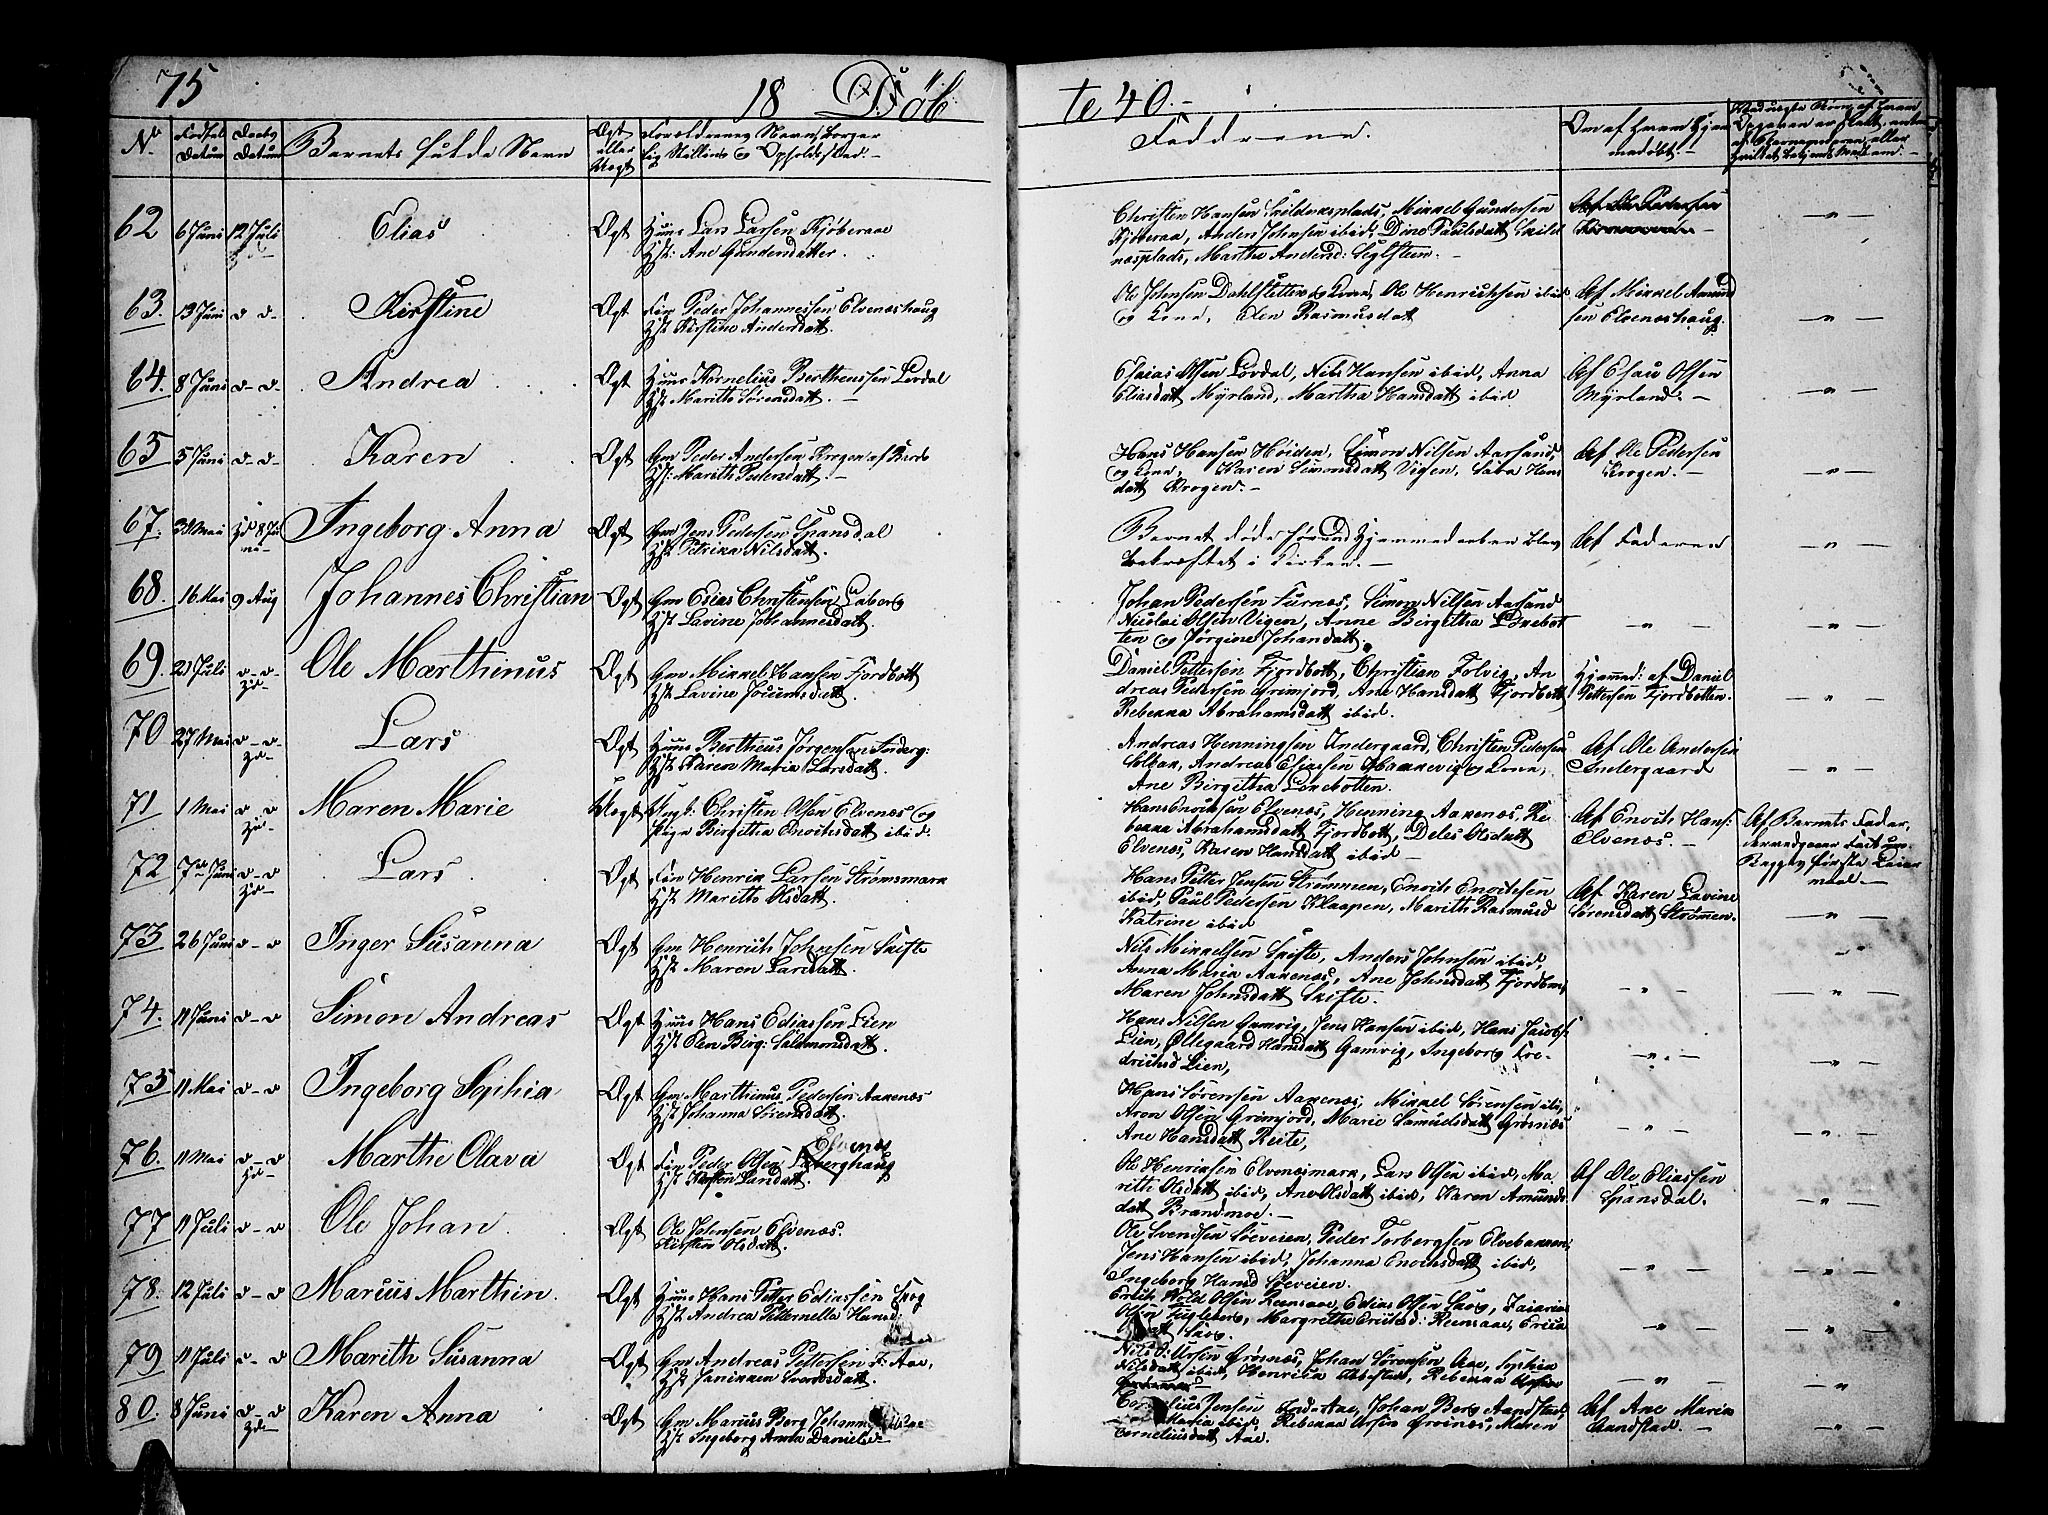 75
18 Döb
te 40.-
No
Fødsel Datum
Daabs Datum
Barnets fulde Navn
Ægt eller Uægt
Forældrenes Navn, borgerlig Stilling og Opholdssted.-
Faddrene.
Om af hvem hjemmedøbt.-
62 6 Juni 12 Juli Elias Ægt
Huus Lars Larsen Kjøberaae
Hst: Ane Gundersdatter.
Christen Hansen Skildresplads, Mikkel Gundersen
Kjøberaa, Anders Johnsen ibid, Dine Paulsdatt Skild
nesplads, Marthe Andersd: Seglsteen.-
63. 13 Juni d d- Kirstine Ægt
Fin Peder Johannessen Elvenæshaug
Hst Kirstine Andersdatt.
Ole Johnsen Dahlsletten & Kone, Ole Henrichsen ibid
og Kone, Elen Rasmusdat
Af Mikkel Amund
sen Elvenæshaug.
64. 8 Juni d-d- Andrea Ægt
Huus Kornelius Berthenssen Lavdal
Hst Marith Sørensdatt.-
Esaias Olsen Lavdal, Nils Hansen ibid, Anna
Eliasdatt Myrland, Martha Hansdatt ibid
Af Esau Olsen
Myrland.-
65 5 Juni d-d- Karen Ægt
Gm Peder Andersen Krogen af Bardo
Hst: Marith Pedersdatt.-
Hans Hansen Høiden, Simon Nilsen Aarsund
og Kone, Karen Simonsdatt Vigen, Sara Hans
datt Krogen.-
Af Ole Pedersen
Krogen.-
67. Mai Hd 8 Juni Ingeborg Anna Ægt
Gm Jens Pedersen Spansdal
Hst Petrika Nilsdatt.
Barnet døde førend Hjemmedaaben blev
bekræftet i Kirken.-
Af Faderen
68. 16 Mai 9 Aug Johannes Christian Ægt
Gm Esias Christensen Laberg
Hst Lavine Johannesdatt.
Johan Pedersen Furnæs, Simon Nilsen Aarsund
Nicolai Olsen Vigen, Anne Birgitha Lønebot
ten og Jørgine Johandatt.
69. 21 Juli d-d- Hd- Ole Marthinus Ægt
Gm Mikkel Hansen Fjordbott
Hst Lavine Jocumsdatt.
Daniel Pettersen Fjordbott, Christian Folvig, An
dreas Pedersen Grimjord, Ane Hansdatt Fjordbott
Rebekka Abrahamsdatt ibid.
Hjemmed: af Daniel
Pettersen Fjordbotten.
70 27 Mai d-d- Hd- Lars Ægt
Huus Bertheus Jørgensen Inderg:
Hst Karen Maria Larsdatt.
Andreas Henningsen Indergaard, Christen Pedersen
Solbak, Andreas Esiassen Haakevig og Kone,
Ane Birgitha Lønebotten.
Af Ole Andersen
Indergaard,
71 1 Mai d d Hd- Maren Marie Uægt
Ungk: Christen Olsen Elvenæs og
Pige Birgitha Enochsdatt ibid.
Hans Enochsen Elvenæs, Henning Aakenæs, Re
bekka Abrahamsdatt Fjordbott, Deles Olsdatt
Elvenæs, Karen Hansdatt ibid-
Af Enoch Hans:
Elvenæs.-
Af Barnets Fader,
Begges første Leier
maal-
72 7de Juni d-d Hd- Lars Ægt
Fin Henrik Larsen Strømsmark
Hst Marithe Olsdatt.
Hans Petter Jensen Strømmen, Enoch Enochsen
ibid, Paul Pedersen Klaapen, Marith Rasmusd
Katrine ibid
Af Karen Lavine
Sørensdatt Strømen.
73 26 Juni d-d Inger Susanna Ægt
Gm Henrich Johnsen Skifte
Hst Maren Larsdatt.
Nils Mikkelsen Skifte, Anders Johnsen ibid,
Anna Maria Aakenæs, Ane Johnsdatt Fjordbon,
Maren Johnsdatt Skifte.
74. 11 Juni d-d Simon Andreas Ægt
Huus Hans Ediassen Lien
Hst Elen Birg: Salomonsdatt.
Hans Nilsen Gamvig, Jens Hansen ibid, Hans Jacobs:
Lien, Ollegaard Hansdatt Gamvig, Ingeborg Fre-
drichsd Lien,
75 11 Mai d-d Ingeborg Sophia Ægt
Gm Marthinus Pedersen Aakenæs
Hst Johanna Siversdatt.
Hans Sørensen Aakenæs, Mikkel Sørensen ibi,
Aron Olsen Grimjord, Marie Samuelsdatt Grønæs
Ane Hansdatt Reite,
76. 11 Mai d-d Hd- Marthe Olava Ægt
Elvenæs
Fin Peder Olsen Laberghaug
Hst Kirsten Larsdatt.
Ole Henriksen Elvenæsmark, Lars Olsen ibid, Ma
rithe Olsdatt ibid, Ane Olsdatt ibid, Karen Amunds
datt Brandmoe.-
Af Ole Eliassen
Spansdal.
77 11 Juli d-d Ole Johan. Ægt
Ole Johnsen Elvenæs.
Kirsten Olsdatt.
Ole Svendsen Søeveien, Peder Torbergsen Elvebakken,
Jens Hansen ibid, Johanna Enochsdatt ibid,
Ingeborg Hansd Søeveien.
78. 12 Juli d-d Marius Marthin. Ægt
Huus Hans Petter Ediassen Skog
Hst Andrea Petternella Hansd.
Erich Wold Olsen Reensaae, Edias Olsen Skog, Zakarias
Olsen Fugleberg, Margrethe Erichsd: Reensaae, Erica
Skog.
79 11 Juli d-d Marith Susanna Ægt
Gm Andreas Pettersen F: Aae,
Hst Janikken Svendsdatt.
Nils Ursin Grøsnæs, Johan Sørensen Aae, Sophia
Nilsdatt ibid, Henricka Ibbestad, Rebekka Ursin
80. 8 Juni d-d Hd- Karen Anna Ægt
Gm Marius Berg Johann
Hst Ingeborg Anna Danielsd-
Cornelius Jensen Inder Aae, Johan Berg Aandstad,
Maria ibid, Rebekka Ursin Grønæs, Maren
Corneliusdatt Aae.
Af Ane Maria
Aandstad.-